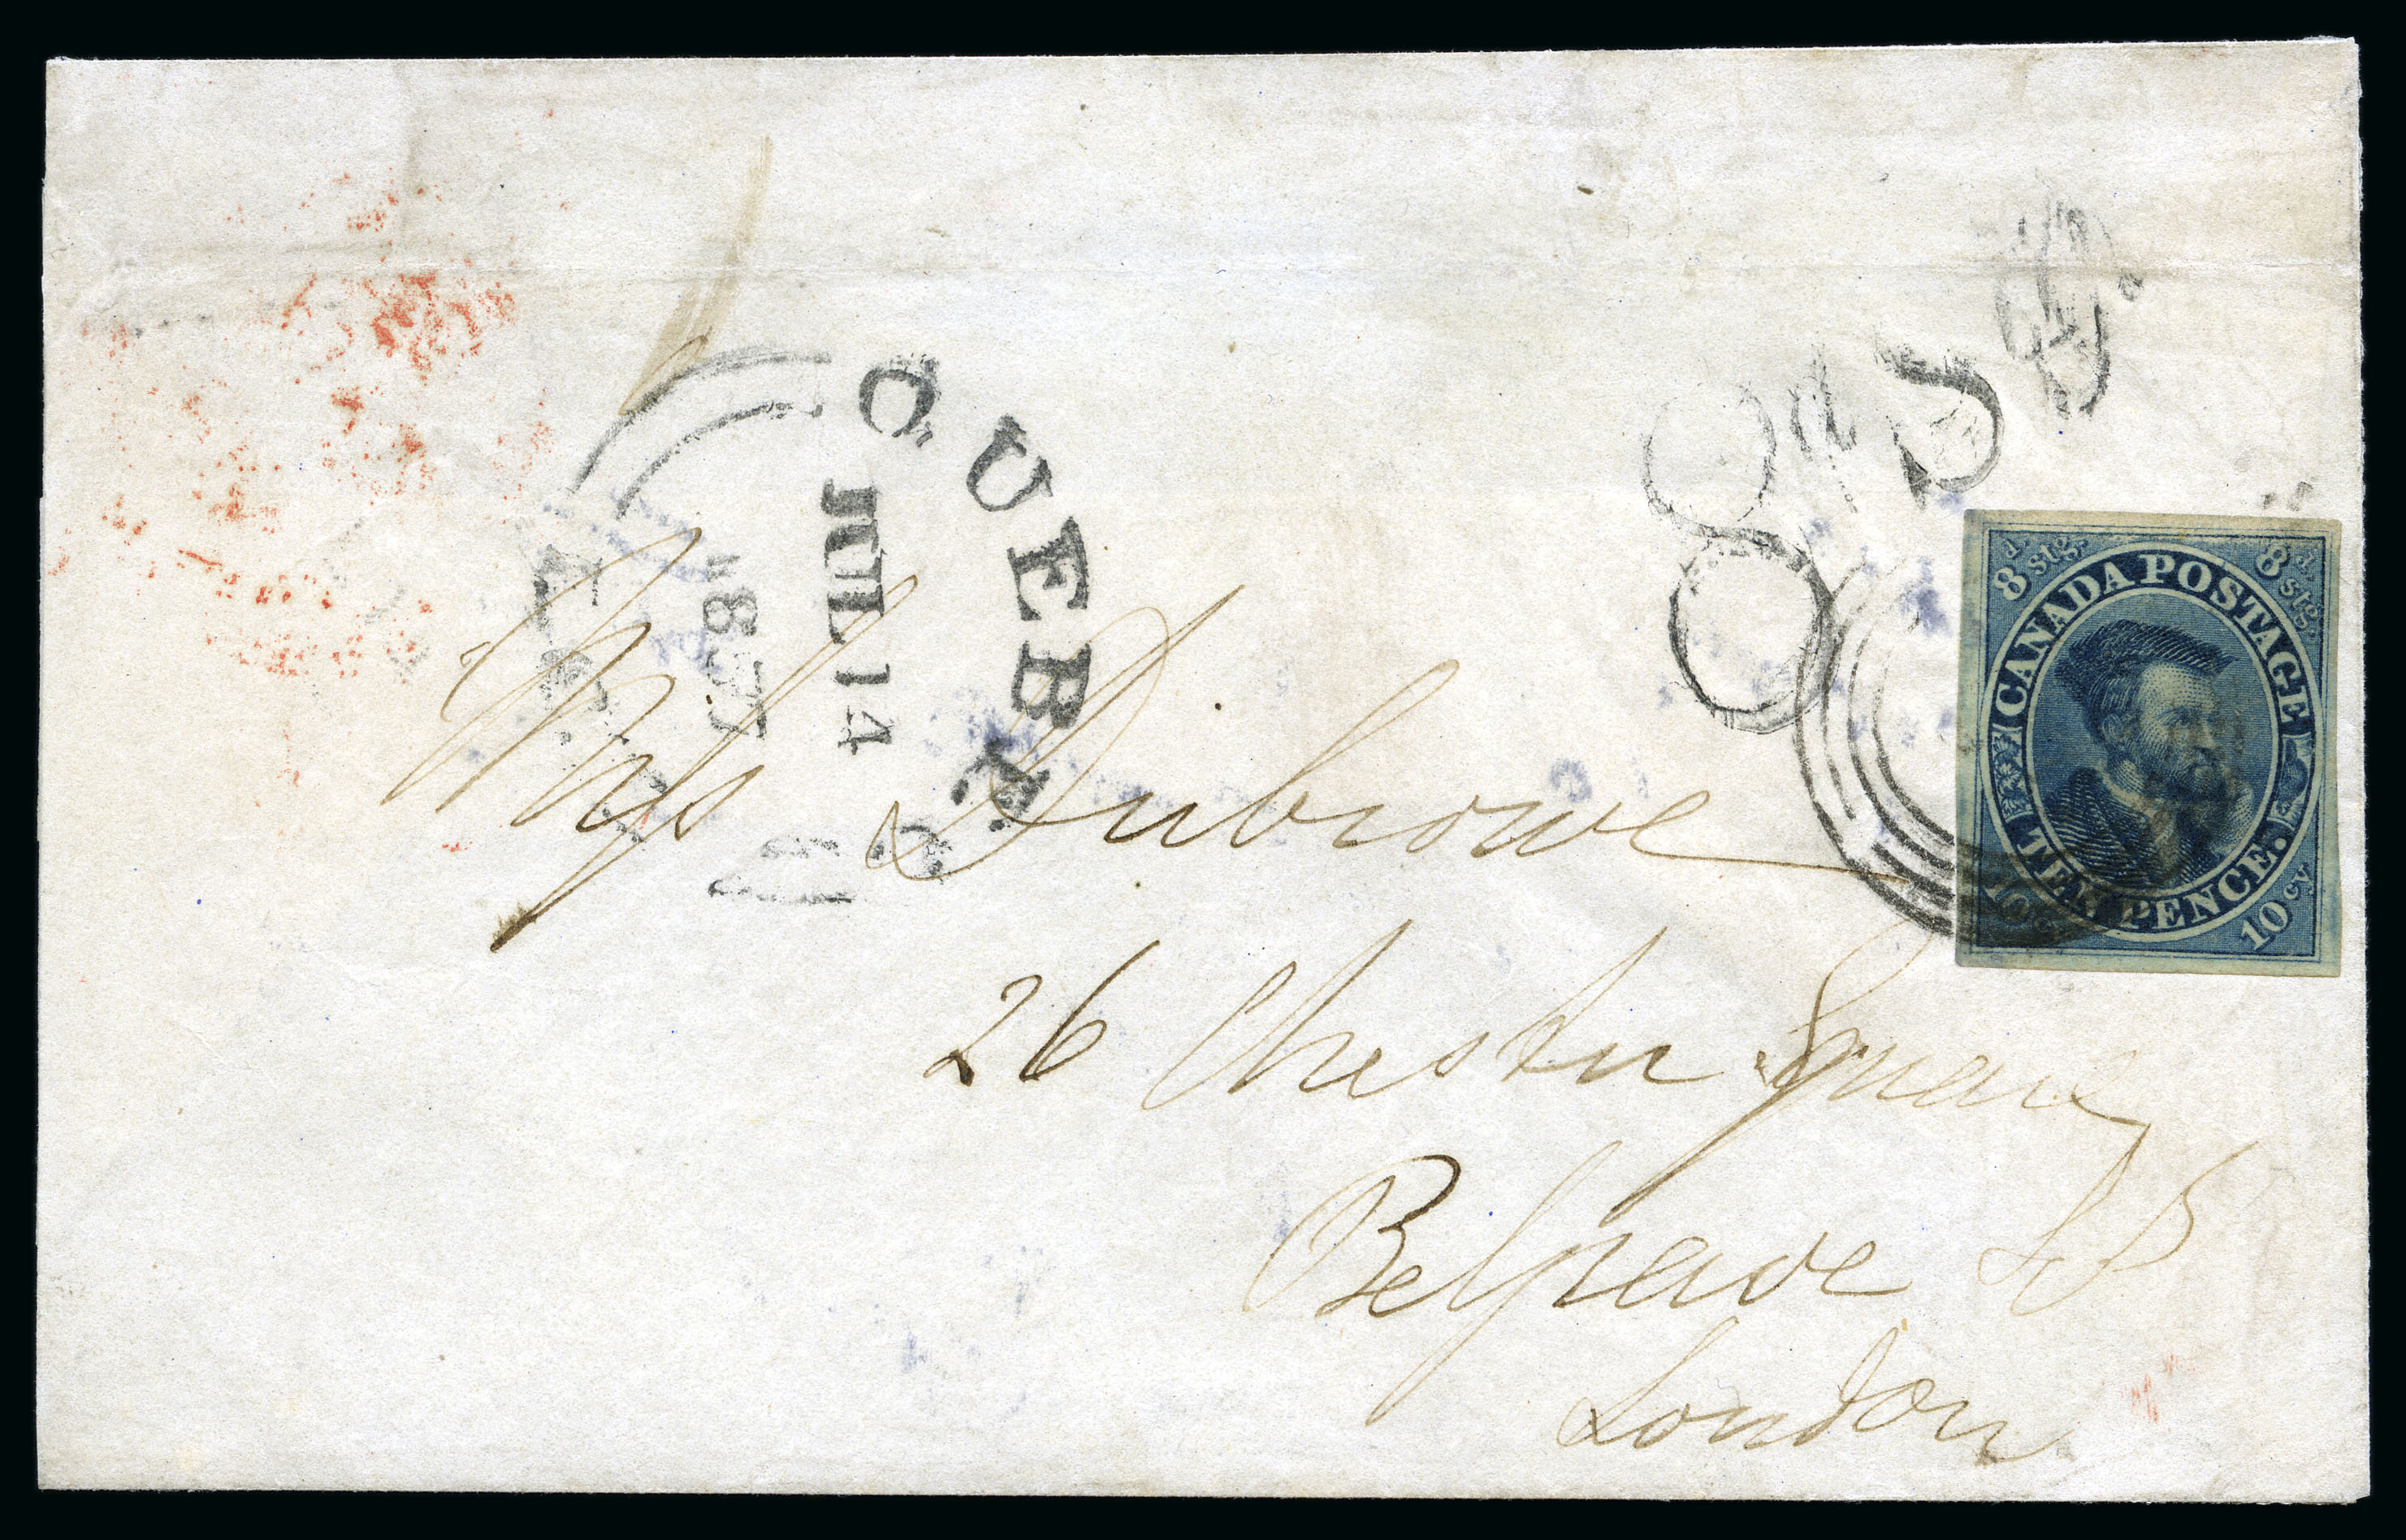 QUEBEC
JUL 14
1857
L.C.
8d stg.
8d stg.
CANADA POSTAGE
TEN PENCE.
10 cy
10 cy
Miss
26 Chester Square
Belgrave
London